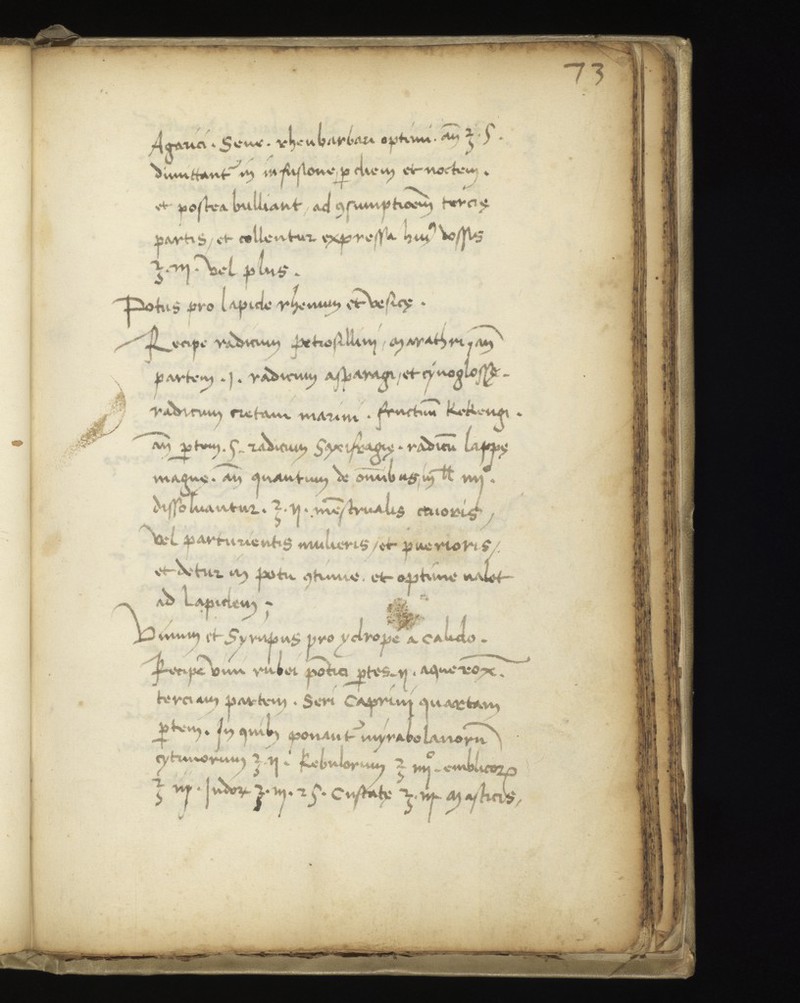 73
Agarici. Sene. rheubarbari optimi. añ ʒ. ς.
dimittant᷑ in infusione, ꝑ diem et noctem.
et postea bulliant, ad ꝯsumptioēm tercię
partis, et collentur expressa huiꝰ dossis
ʒ. iij. vel plus.
Potus pro lapide rhenum et vesicę.
Recipe radicum petrosillini, marathri, añ
partem. j. radicum asparagi, et cynoglossę.
radicum cretani marini. fructuū kekengi.
añ ꝑtem. ς. radicum saxifragię. radicū lappę
magne. añ quantum de omībus, in
dissoluantur. ʒ. ij. mēstrualis
vel parturientis mulieris, et puerioris,
et detur in potu ꝯtinue. et optime ualet
ad lapidem;
Vinum et Syrupus pro ydrope a calido.
Recipe vini rubei pōtici ꝑtes. ij. aque rox̄.
terciam partem. Seri Caprini quartam
ꝑtem. In quibꝫ ponant᷑ myrabolanorū
cytrinorum ʒ. ij. kebulorum ʒ iiijº. emblicoꝝ
ʒ iij. Indoꝝ ʒ. iij. ꝛ ς. Cuscutę ʒ. iij. Masticis,